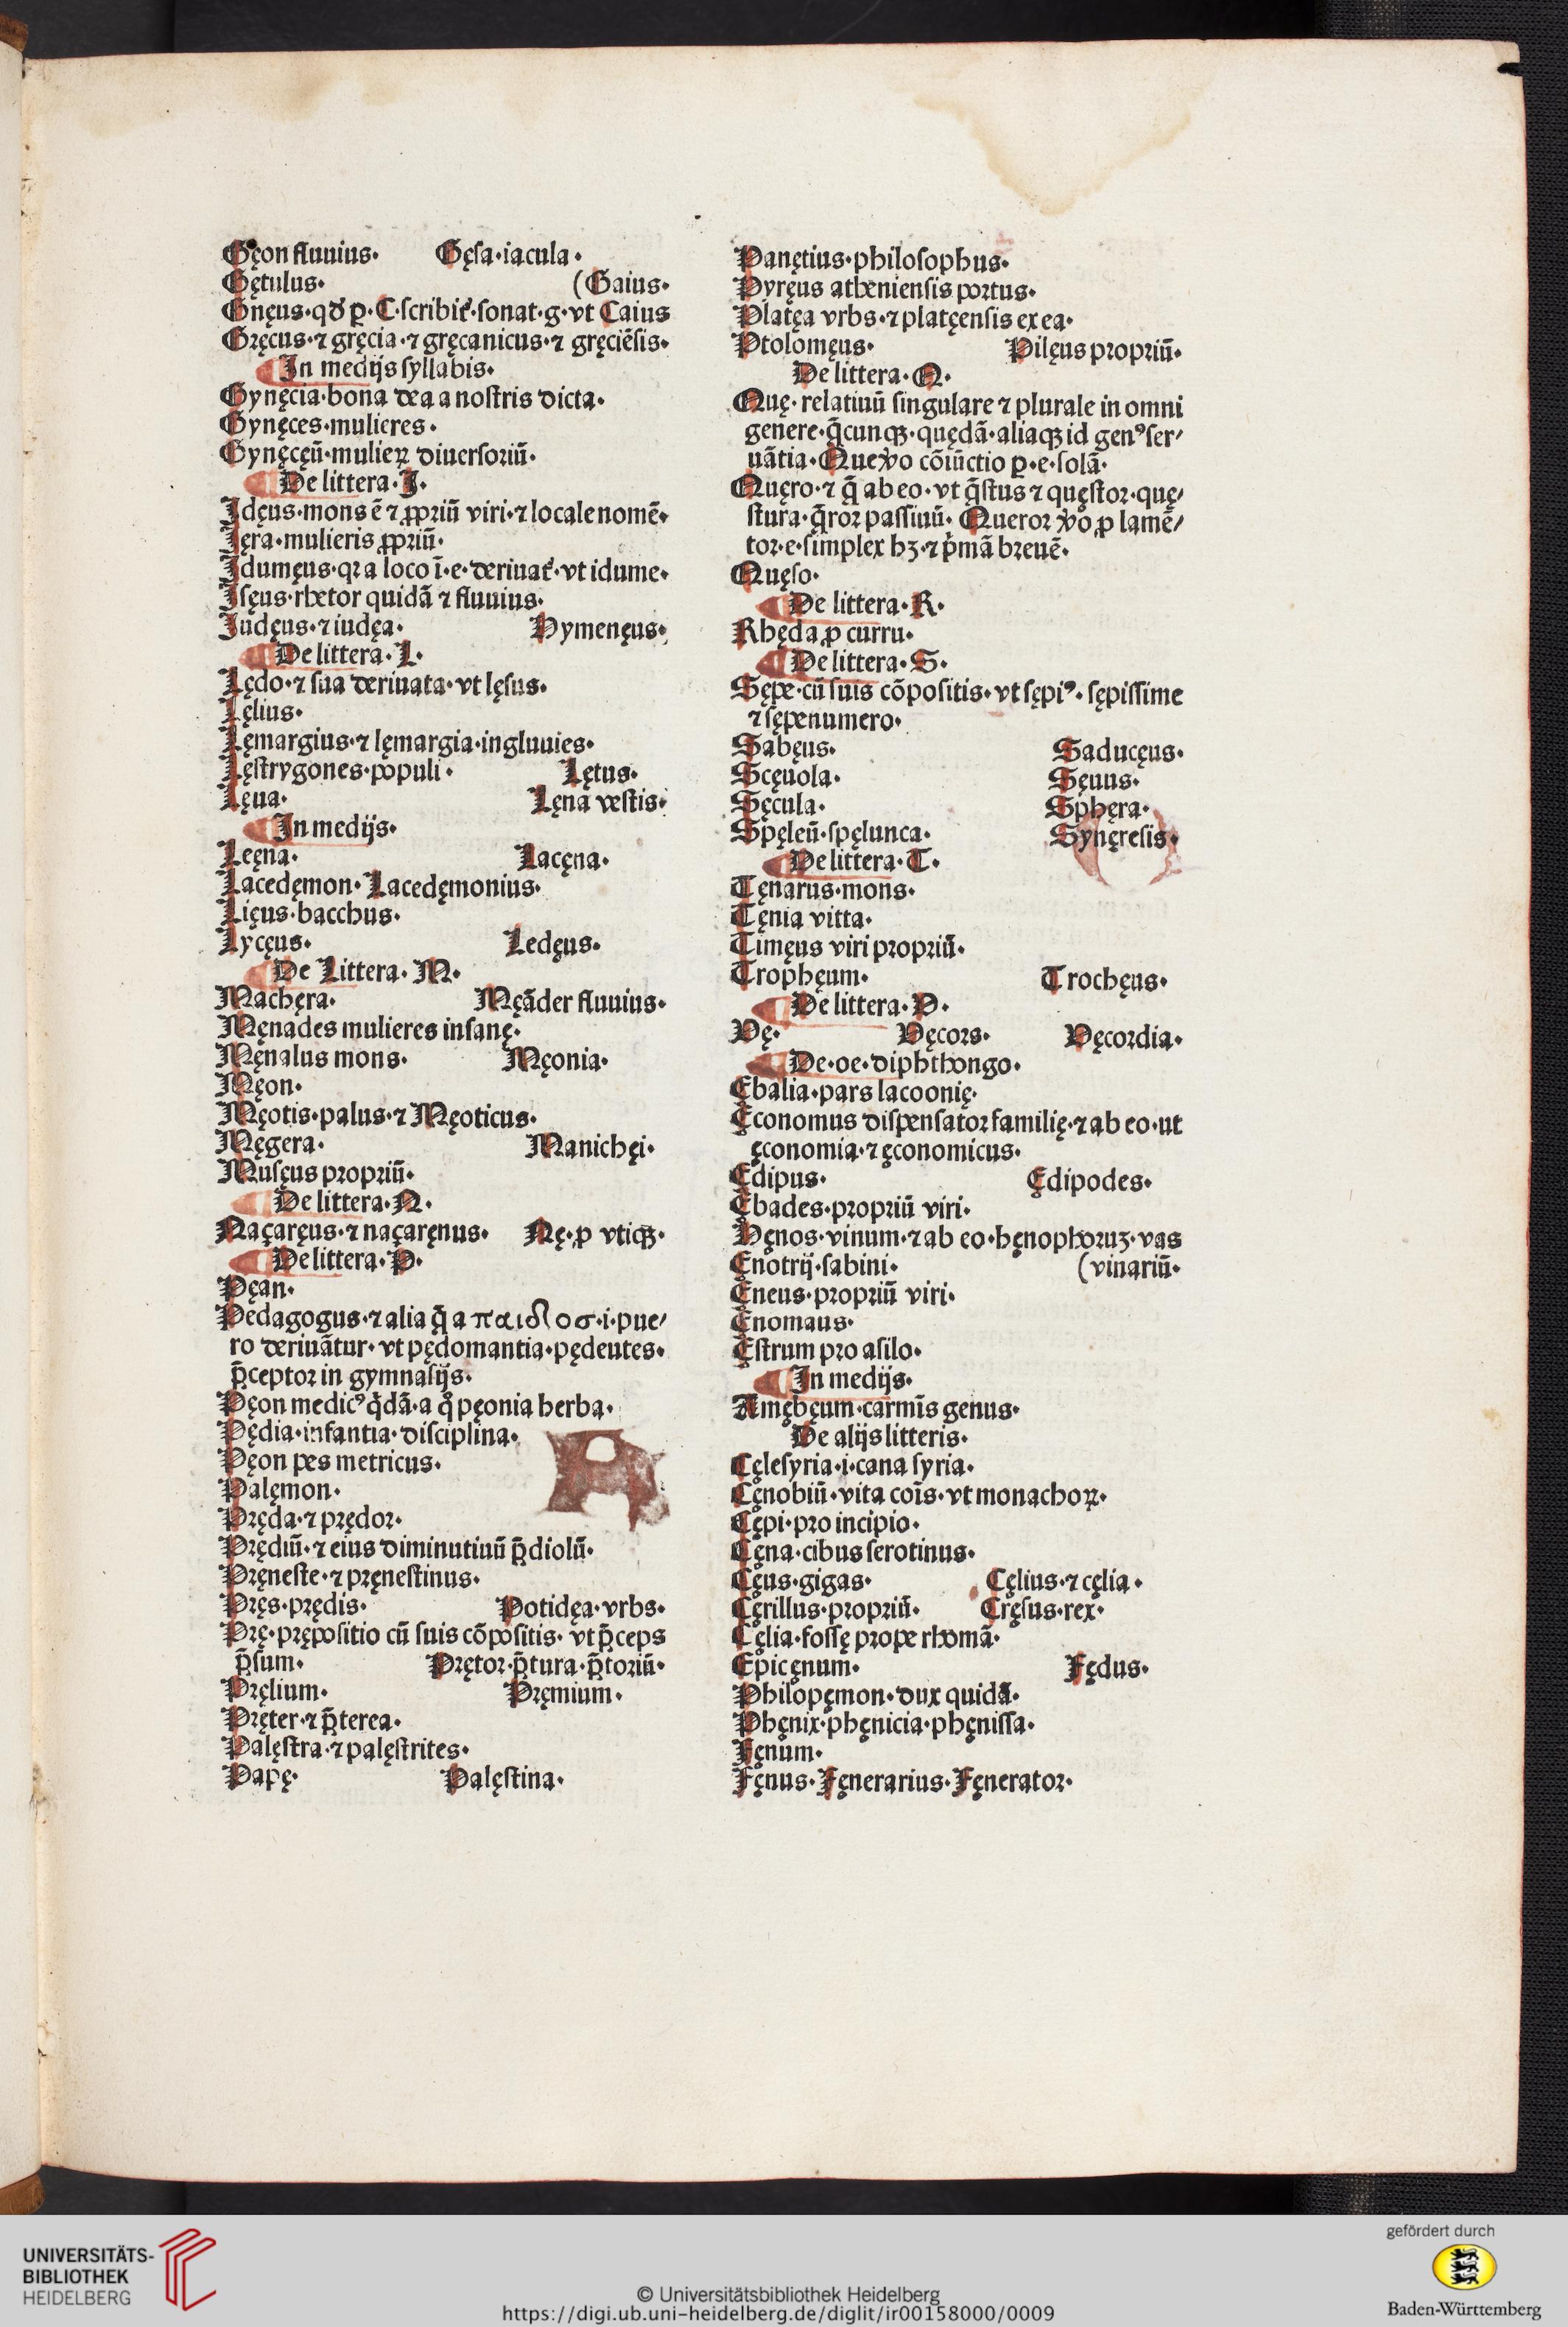 Gęon fluuius· Gęſa·iacula·
Gętulus· (Gaius·
Gnęus·qđ ꝑ·C·ſcribit᷑·ſonat·g·vt Caius
Gręcus·⁊ gręcia·⁊ gręcanicus·⁊ gręciēſis·
In medijs ſyllabis·
Gynęcia·bona dea a noſtris dicta·
Gynęces·mulieres·
Gynęcęū·mulieꝝ diuerſoriū·
De littera·I·
Idęus·mons ē ⁊ ꝓpriū viri·⁊ locale nomē·
Ięra·mulieris ꝓpriū·
Idumęus·qꝛ a loco ī·e·deriuat᷑·vt idume·
Iſęus·rhetor quidā ⁊ fluuius·
Iudęus·⁊ iudęa· Hymenęus·
De littera·L·
Lędo·⁊ ſua deriuata·vt lęſus·
Lęlius·
Lęmargius·⁊ lęmargia·ingluuies·
Lęſtrygones·populi· Lętus·
Lęua· Lęna veſtis·
In medijs·
Leęna· Lacęna·
Lacedęmon·Lacedęmonius·
Lięus·bacchus·
Lycęus· Ledęus·
De Littera·M·
Machęra· Męāder fluuius·
Męnades mulieres inſanę·
Męnalus mons· Męonia·
Męon·
Męotis·palus·⁊ Męoticus·
Męgera· Manichęi·
Muſęus propriū·
De littera·N·
Naçaręus·⁊ naçaręnus· Nę·ꝓ vtiqꝫ·
De littera·P·
Pęan·
Pędagogus·⁊ alia q̄ a παιδος·i·pue/
ro deriuātur·vt pędomantia·pędeutes·
p̄ceptor in gymnaſijs·
Pęon medicꝰ q̄dā·a quͦ pęonia herba·
Pędia·infantia·diſciplina·
Pęon pes metricus·
Palęmon·
Pręda·⁊ prędor·
Prędiū·⁊ eius diminutiuū p̄diolū·
Pręneſte·⁊ pręneſtinus·
Pręs·prędis· Potidęa·vrbs·
Prę·prępoſitio cū ſuis cōpoſitis·vt p̄ceps
p̄ſum· Prętor·p̄tura·p̄toriū·
Pręlium· Pręmium·
Pręter·⁊ p̄terea·
Palęſtra·⁊ palęſtrites·
Papę· Palęſtina·
Panętius·philoſophus·
Pyręus athenienſis portus·
Platęa vrbs·⁊ platęenſis ex ea·
Ptolomęus· Pilęus propriū·
De littera·Q·
Quę·relatiuū ſingulare ⁊ plurale in omni
genere·q̄cunqꝫ·quędā·aliaqꝫ id genꝰ ſer/
uātia·Que v̊o cōiūctio ꝑ·e·ſolā·
Quęro·⁊ q̄ ab eo·vt q̄ſtus ⁊ quęſtor·quę/
ſtura·q̄ror paſſiuū·Queror v̊o ꝓ lamē/
tor·e·ſimplex hꝫ·⁊ p̄mā breuē·
Quęſo·
De littera·R·
Rhęda ꝓ curru·
De littera·S·
Sępe·cū ſuis cōpoſitis·vt ſępiꝰ·ſępiſſime
⁊ ſępenumero·
Sabęus· Saducęus·
Scęuola· Sęuus·
Sęcula· Sphęra·
Spęleū·ſpęlunca· Synęreſis·
De littera·T·
Tęnarus·mons·
Tęnia vitta·
Timęus viri propriū·
Trophęum· Trochęus·
De littera·V·
Vę· Vęcors· Vęcordia·
De·oe·diphthongo·
Ębalia·pars lacoonię·
Ęconomus diſpenſator familię·⁊ ab eo·ut
ęconomia·⁊ ęconomicus·
Ędipus· Ędipodes·
Ębades·propriū viri·
Hęnos·vinum·⁊ ab eo·hęnophoruꝫ·vas
Ęnotrij·ſabini· (vinariū·
Ęneus·propriū viri·
Ęnomaus·
Ęſtrum pro aſilo·
In medijs·
Amębęum·carmīs genus·
De alijs litteris·
Cęleſyria·i·cana ſyria·
Cęnobiū·vita coīs·vt monachoꝝ·
Cępi·pro incipio·
Cęna·cibus ſerotinus·
Cęus·gigas· Cęlius·⁊ cęlia·
Cęrillus·propriū· Cręſus·rex·
Cęlia·foſſę prope rhomā·
Epicęnum· Fędus·
Philopęmon·dux quidā·
Phęnix·phęnicia·phęniſſa·
Fęnum·
Fęnus·Fęnerarius·Fęnerator·
UNIVERSITÄTS-
BIBLIOTHEK
HEIDELBERG
© Universitätsbibliothek Heidelberg
https://digi.ub.uni-heidelberg.de/diglit/ir00158000/0009
gefördert durch
Baden-Württemberg